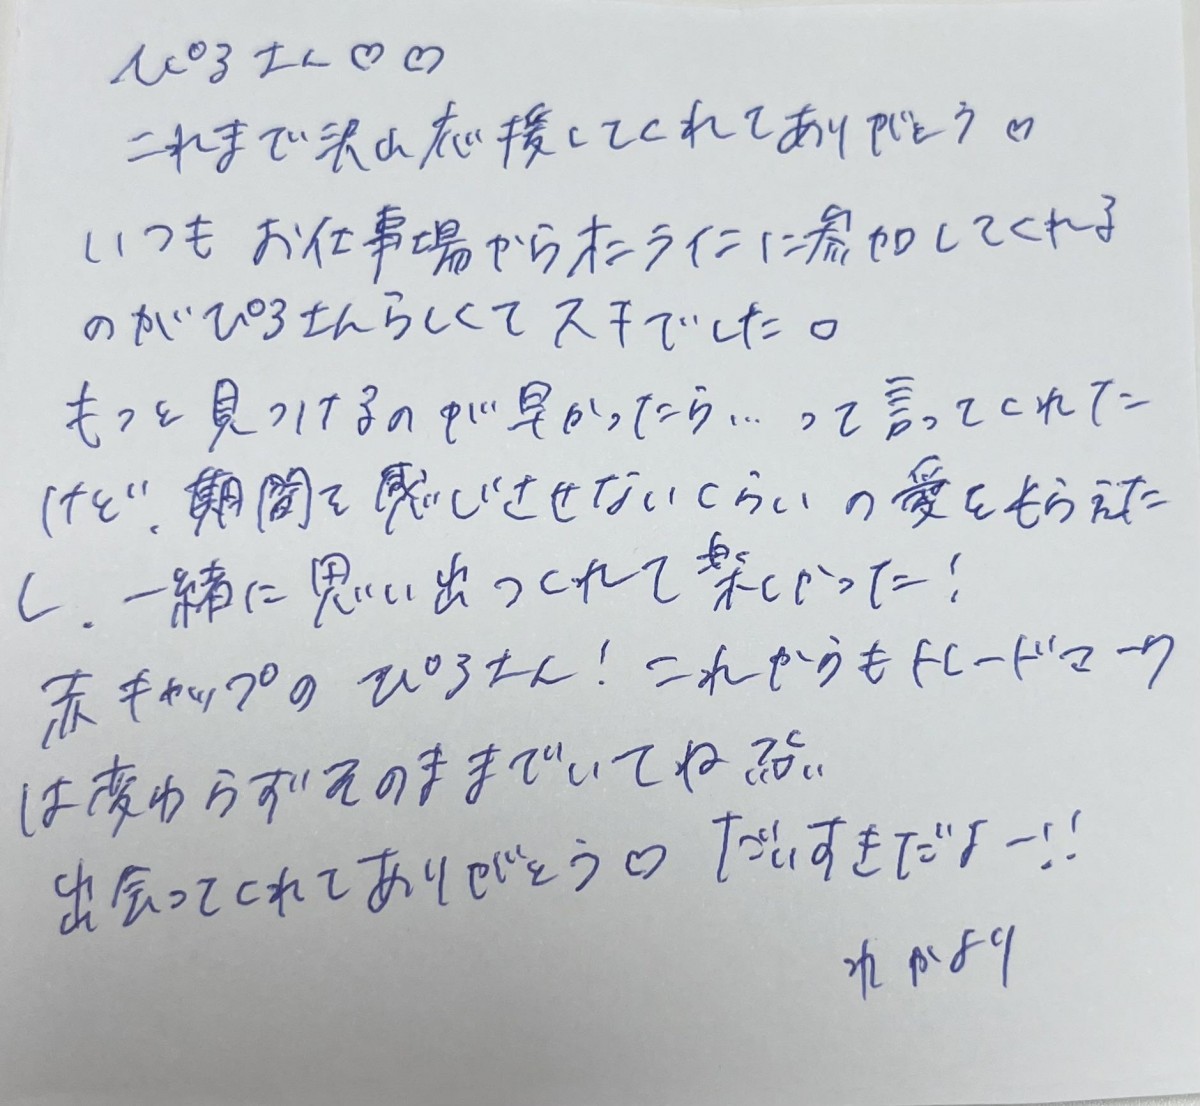 ぴろさん♡♡
これまで沢山応援してくれてありがとう♡
いつもお仕事場からオンラインに参加してくれる
のがぴろさんらしくてスキでした。
もっと見つけるのが早かったら…って言ってくれた
けど、期間を感じさせないくらいの愛をもらえた
し、一緒に思い出つくれて楽しかった!
赤キャップのぴろさん!これからもトレードマーク
は変わらずそのままでいてね
出会ってくれてありがとう♡だいすきだよー!!
れかより